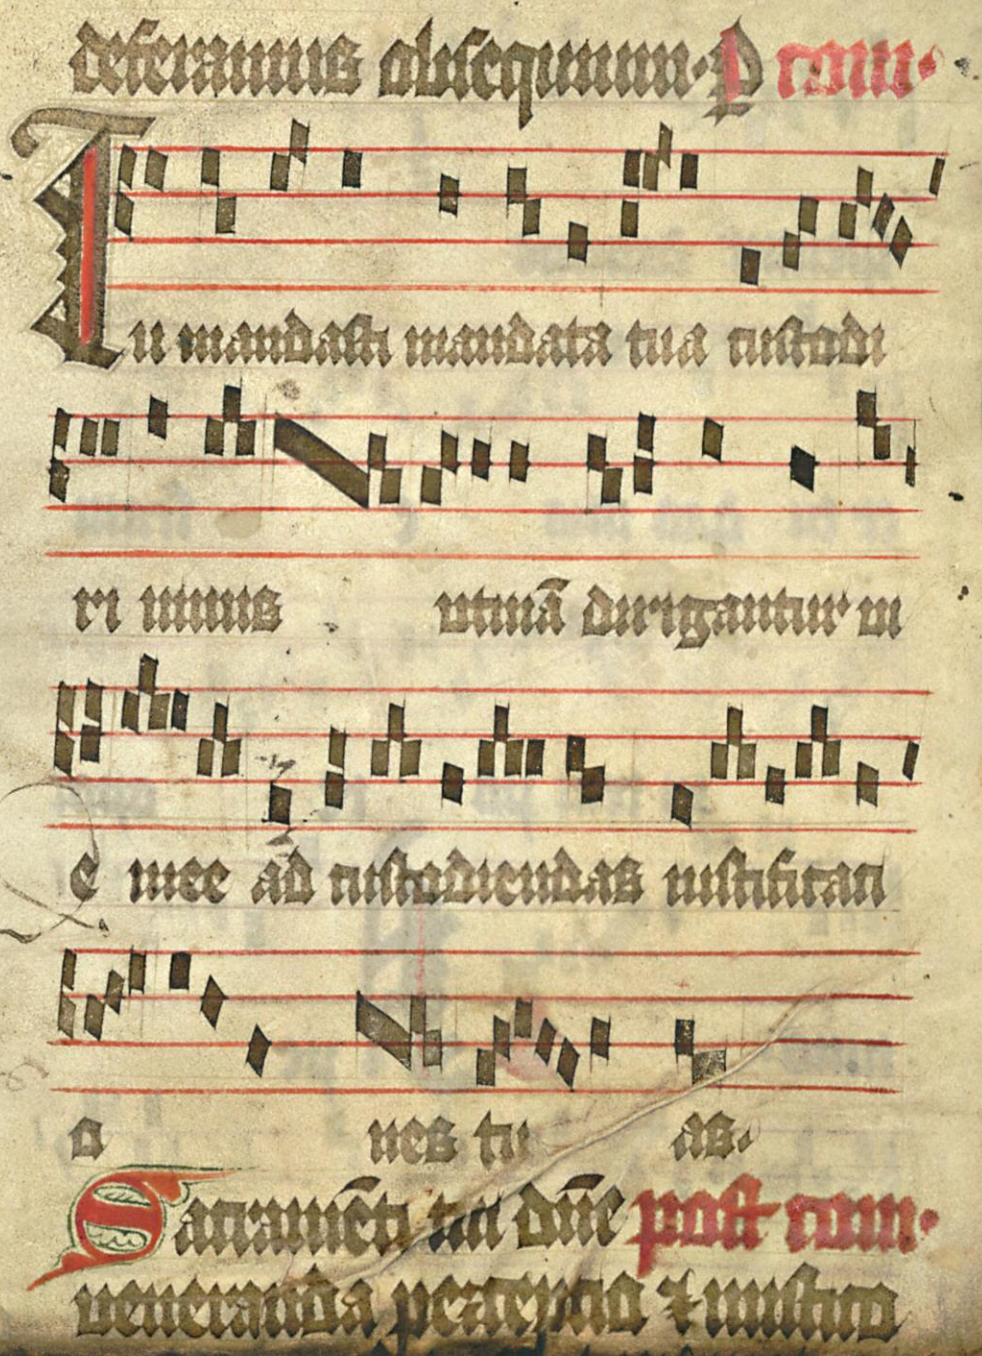 deferamus obsequium. P com.
Tu mandasti mandata tua custodi
ri nimis utinā dirigantur vi
e mee ad custodiendas iustificati
o nes tu as.
Sacramēti tui dn̄e post com.
veneranda perceptio & mistico